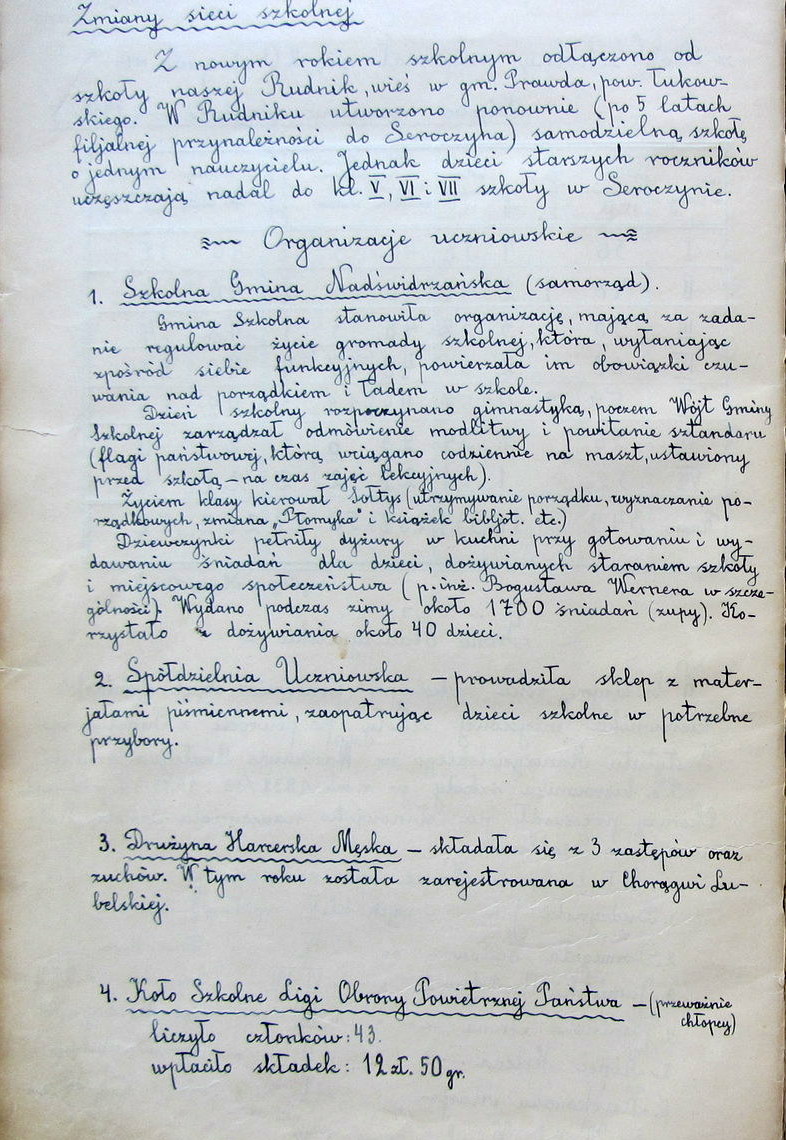 Zmiany sieci szkolnej
Z nowym rokiem szkolnym odłączono od
szkoły naszej Rudnik, wieś w gm. Prawda, pow. Łukow-
skiego. W Rudniku utworzono ponownie (po 5 latach
filjalnej przynależności do Seroczyna) samodzielną szkołę
o jednym nauczycielu. Jednak dzieci starszych roczników
uczęszczają nadal do kl. V, VI i VII szkoły w Seroczynie.
Organizacje uczniowskie
1. Szkolna Gmina Nadświdrzańska (samorząd).
Gmina Szkolna stanowiła organizację, mającą za zada-
nie regulować życie gromady szkolnej, która, wyłaniając
zpośród siebie funkcyjnych, powierzała im obowiązki czu-
wania nad porządkiem i ładem w szkole.
Dzień szkolny rozpoczynano gimnastyką, poczem Wójt Gminy
Szkolnej zarządzał odmówienie modlitwy i powitanie sztandaru
(flagi państwowej, którą wciągano codziennie na maszt, ustawiony
przed szkołą – na czas zajęć lekcyjnych).
Życiem klasy kierował Sołtys (utrzymywanie porządku, wyznaczanie po-
rządkowych, zmiana „Płomyka" i książek bibljot. etc.)
Dziewczynki pełniły dyżury w kuchni przy gotowaniu i wy-
dawaniu śniadań dla dzieci, dożywianych staraniem szkoły
i miejscowego społeczeństwa (p. inż. Bogusława Wernera w szcze-
gólności). Wydano podczas zimy około 1700 śniadań (zupy). Ko-
rzystało z dożywiania około 40 dzieci.
2. Spółdzielnia Uczniowska – prowadziła sklep z mater-
jałami piśmiennemi, zaopatrując dzieci szkolne w potrzebne
przybory.
3. Drużyna Harcerska Męska – składała się z 3 zastępów oraz
zuchów. W tym roku została zarejestrowana w Chorągwi Lu-
belskiej.
4. Koło Szkolne Ligi Obrony Powietrznej Państwa – (przeważnie
chłopcy)
liczyło członków: 43.
wpłaciło składek: 12 zł. 50 gr.